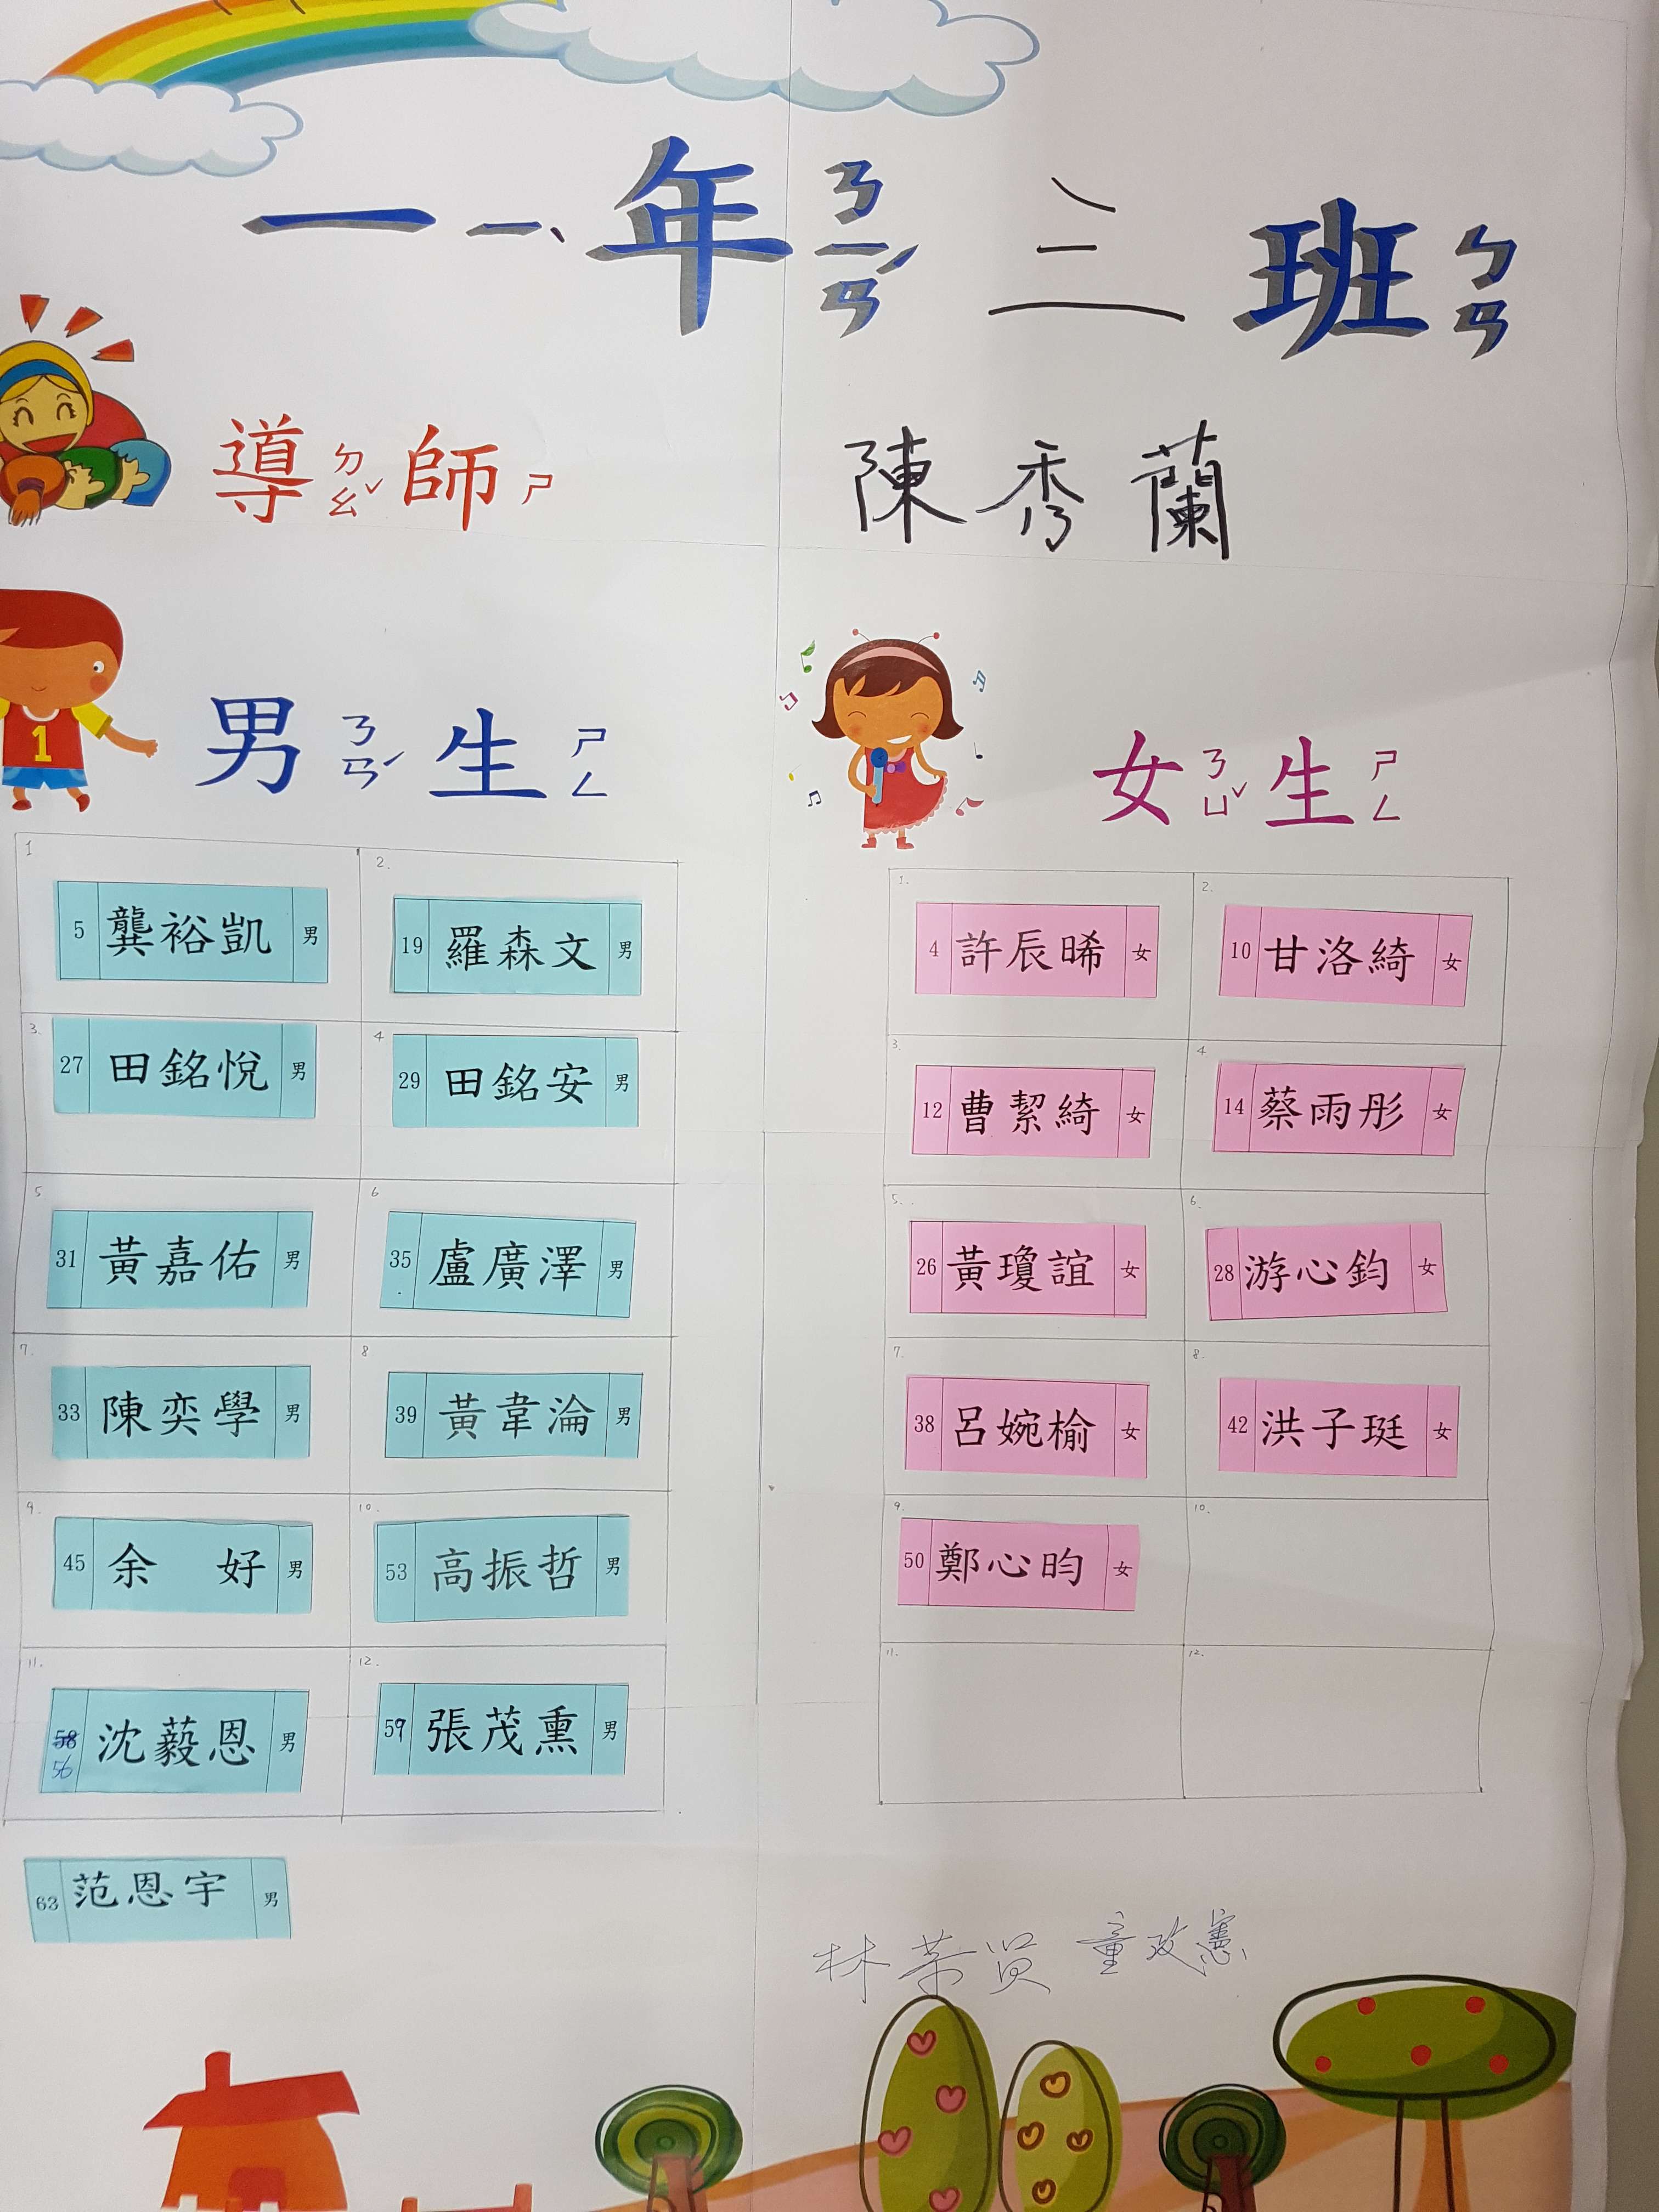 一 ㄧ、 年 ㄋㄧㄢˊ 三 班 ㄅㄢ
導 ㄉㄠˇ 師 ㄕ 陳秀蘭
1
男 ㄋㄢˊ 生 ㄕㄥ
女 ㄋㄩˇ 生 ㄕㄥ
1 5 龔裕凱 男
2. 19 羅森文 男
3. 27 田銘悅 男
4 29 田銘安 男
5 31 黃嘉佑 男
6 35 盧廣澤 男
7. 33 陳奕學 男
8 39 黃韋淪 男
9. 45 余 好 男
10. 53 高振哲 男
11. 58 56 沈藙恩 男
12. 59 張茂熏 男
63 范恩宇 男
1. 4 許辰晞 女
2. 10 甘洛綺 女
3. 12 曹絜綺 女
4 14 蔡雨彤 女
5. 26 黃瓊誼 女
6. 28 游心鈞 女
7. 38 呂婉榆 女
8. 42 洪子珽 女
9. 50 鄭心昀 女
10.
11.
12.
林 童政憲